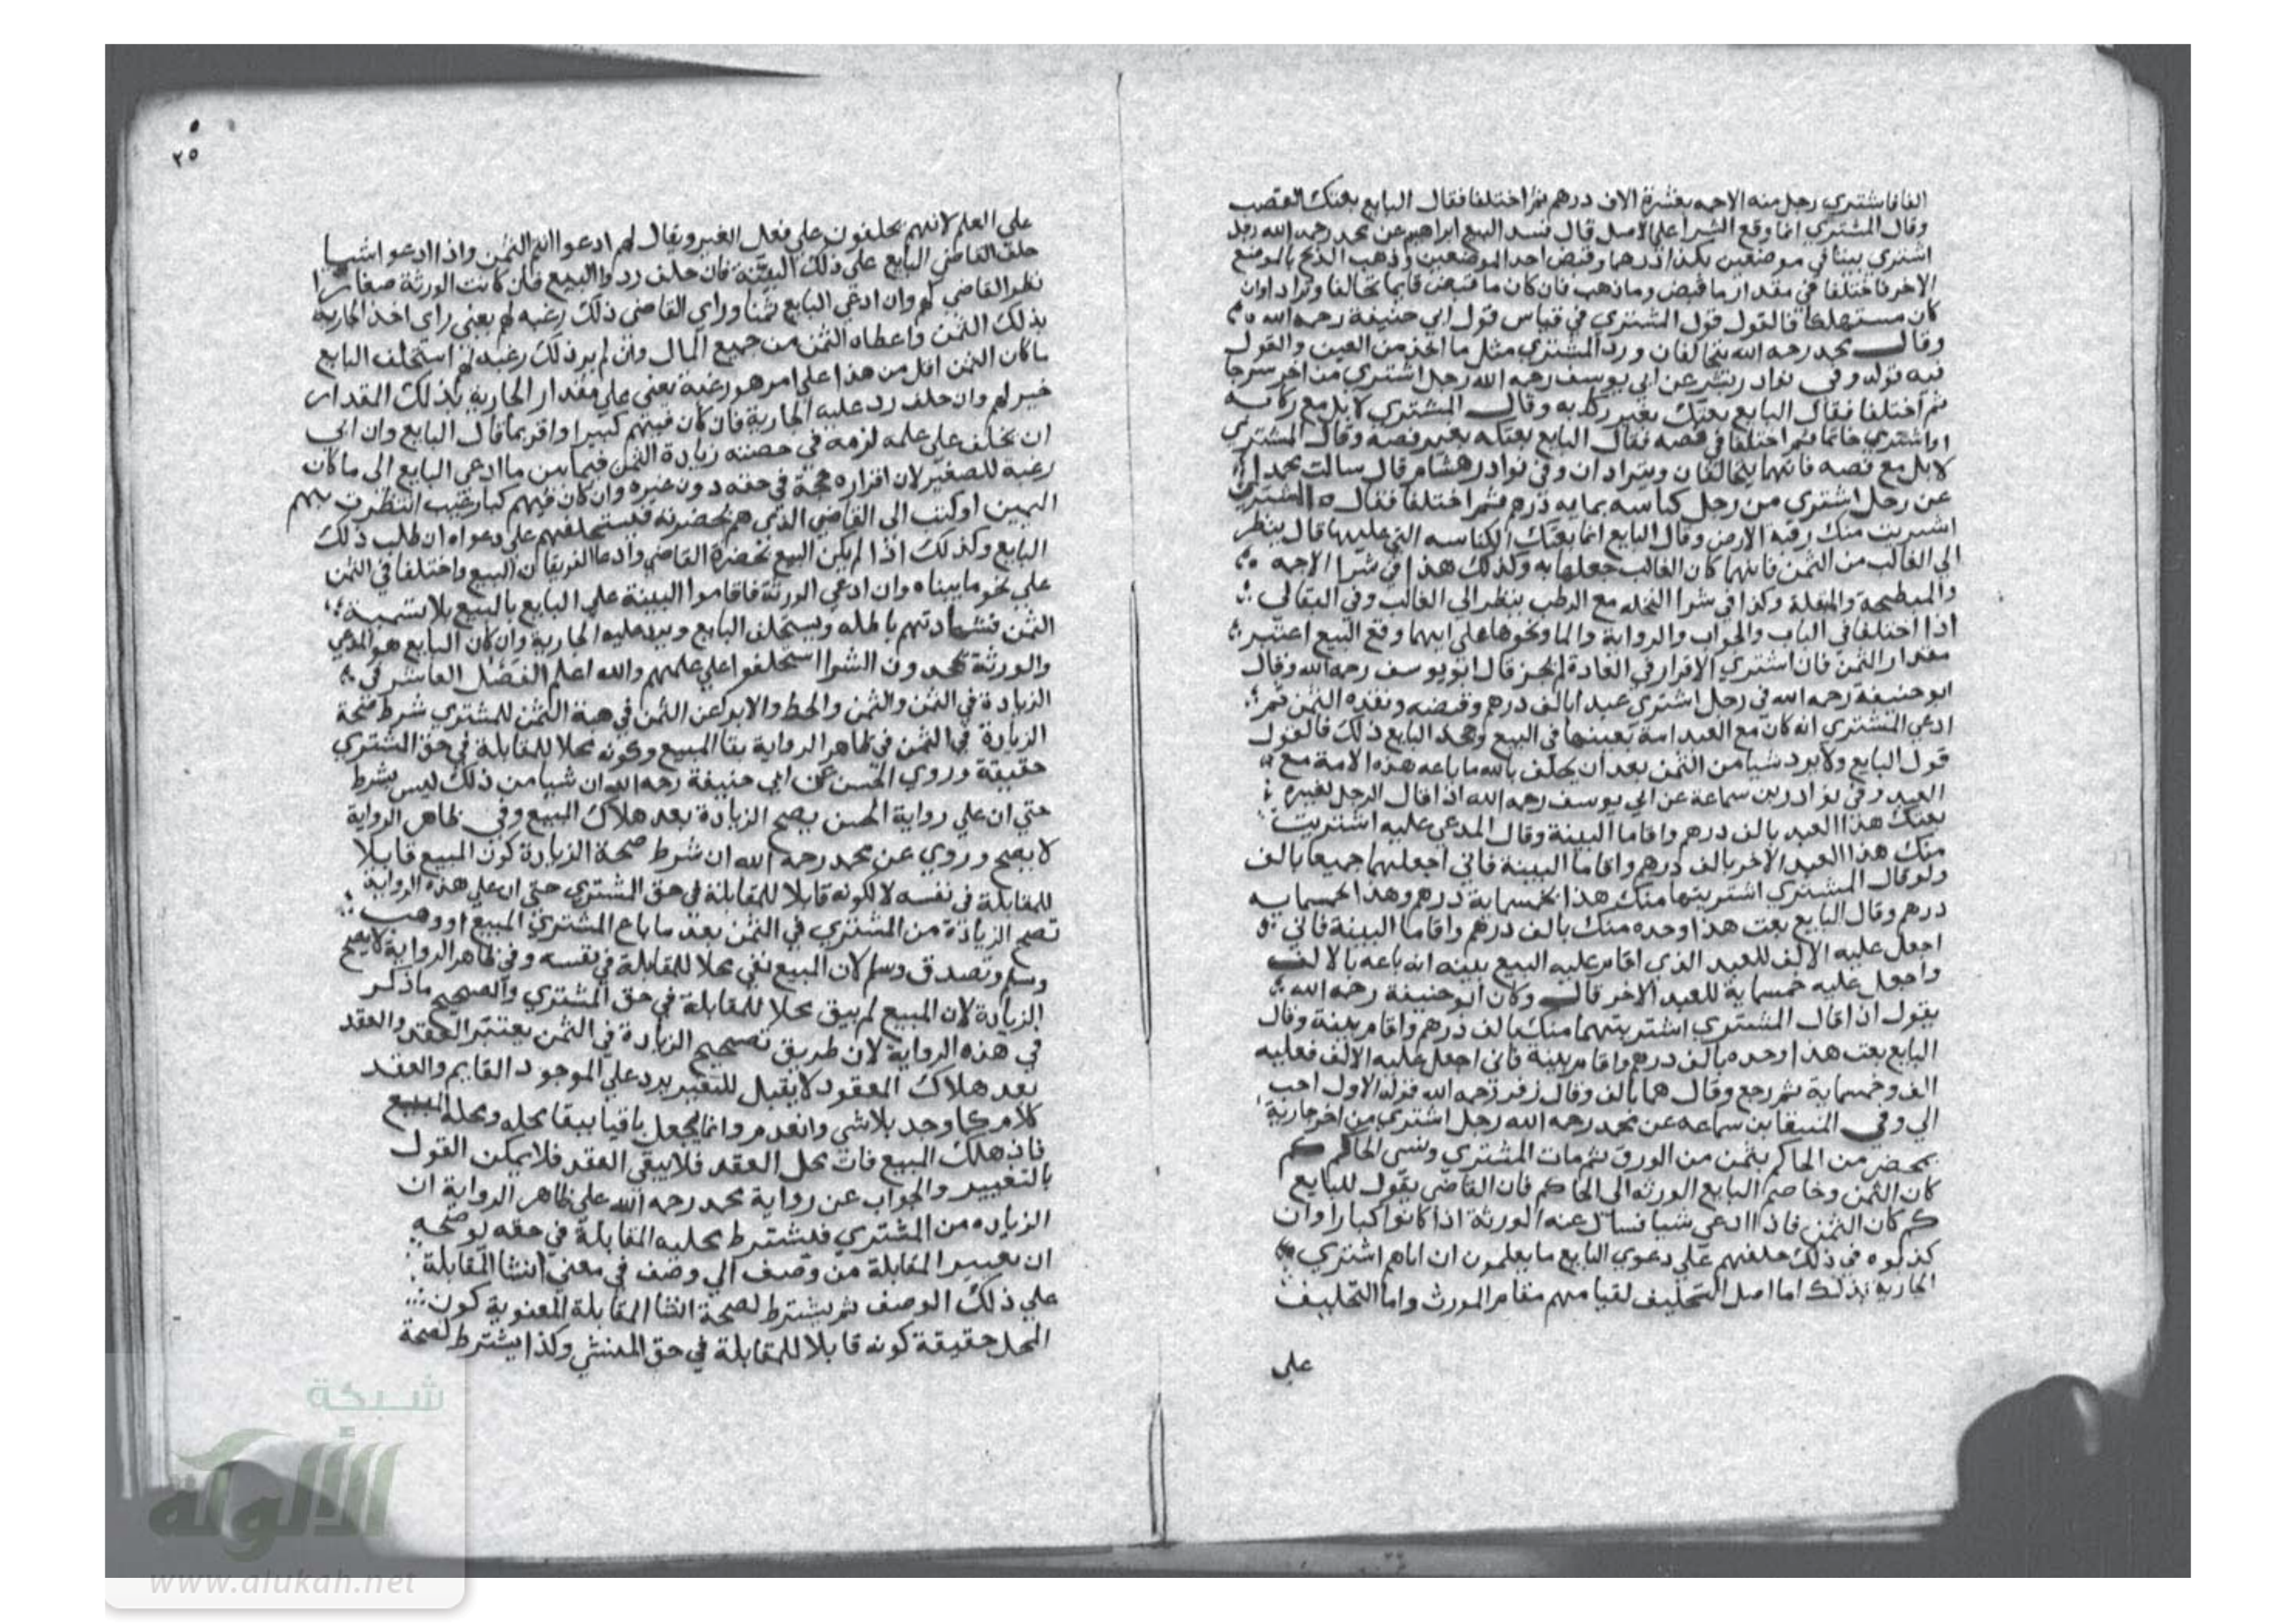 الفا فاشتري رجل منه الاجمه بعشرة الاف درهم ثم اختلفا فقال البايع بعتك القصب
وقال المشتري انما وقع الشرا علي الاصل قال فسد البيع ابراهيم عن محمد رحمه الله رجل
اشتري بيتا في موضعين بكذا درهما وقبض احد الموضعين وذهب الذبح بالموضع
الاخر فاختلفا في مقدار ما قبض وما ذهب فان كان ما قبض قايما تحالفا وترادا وان
كان مستهلكا فالقول قول المشتري في قياس قول ابي حنيفة رحمه الله
وقال محمد رحمه الله يتحالفان ورد المشتري مثل ما اخذ من العين والقول
فيه قوله وفي نوادر بشر عن ابي يوسف رحمه الله رجل اشتري من اخر سرجا
ثم اختلفا فقال البايع بعتك بغير ركابه وقال المشتري لا بل مع ركابه
او اشتري خاتما ثم اختلفا في فصه فقال البايع بعتكه بغير فصه وقال المشتري
لا بل مع فصه فانهما يتحالفان ويترادان وفي نوادر هشام قال سالت محمدا
عن رجل اشتري من رجل كباسه بمايه درهم ثم اختلفا فقال المشتري
اشتريت منك رقبة الارض وقال البايع انما بعتك الكناسه التي عليها قال ينظر
الي الغالب من الثمن فايهما كان الغالب جعلها به وكذلك هذا في شرا الاجمه
والمبطخة والمبقلة وكذا في شرا النخله مع الرطب ينظر الي الغالب وفي البقالي
اذا اختلفا في الباب والجواب والرواية والما ونحوها علي ايهما وقع البيع اعتبر
مقدار الثمن فان اشتري الاقرار في العادة لم يجز قال ابو يوسف رحمه الله وقال
ابو حنيفة رحمه الله في رجل اشتري عبدا بالف درهم وقبضه ونقده الثمن ثم
ادعي المشتري انه كان مع العبد امة بعينها في البيع وجحد البايع ذلك فالقول
قول البايع ولا يرد شيا من الثمن بعد ان يحلف بالله ما باعه هذه الامة مع
العبد وفي نوادر بن سماعة عن ابي يوسف رحمه الله اذا قال الرجل لغيره
بعتك هذا العبد بالف درهم واقاما البينة وقال المدعي عليه اشتريت
منك هذا العبد الاخر بالف درهم واقاما البينة فاني اجعلهما جميعا بالف
ولو قال المشتري اشتريتهما منك هذا بخمسماية درهم وهذا بخمسمايه
درهم وقال البايع بعت هذا وحده منك بالف درهم واقاما البينة فاني
اجعل عليه الالف للعبد الذي اقام عليه البيع بينه انه باعه بالالف
واجعل عليه خمسماية للعبد الاخر قال وكان ابو حنيفة رحمه الله
يقول اذا قال المشتري اشتريتهما منك بالف درهم واقام بينة وقال
البايع بعت هذا وحده بالف درهم واقام بينة فاني اجعل عليه الالف فعليه
الف وخمسماية ثم رجع وقال هما بالف وقال زفر رحمه الله قوله الاول احب
الي وفي المنتقا بن سماعه عن محمد رحمه الله رجل اشتري من اخر جارية
بمحضر من الحاكم بثمن من الورق ثم مات المشتري ونسي الحاكم كم
كان الثمن وخاصم البايع الورثه الي الحاكم فان القاضي يقول للبايع
كم كان الثمن فاذا ادعي شيا فسال عنه الورثة اذا كانوا كبارا وان
كذبوه في ذلك حلفهم علي دعوي البايع ما يعلمون ان اباهم اشتري
الجارية بذلك اما اصل التحليف لقيامهم مقام المورث واما التحليف
علي
٢٥
علي العلم لانهم يحلفون علي فعل الغير ويقال لهم ادعوا انتم الثمن واذا ادعوا شيا
حلف القاضي البايع علي ذلك البتة فان حلف رد والبيع فان كانت الورثة صغارا
نظر القاضي لهم وان ادعي البايع ثمنا وراي القاضي ذلك رغبه لهم يعني راي اخذ الجارية
بذلك الثمن واعطاه الثمن من جميع المال وان لم ير ذلك رغبه لهم استحلف البايع
ما كان الثمن اقل من هذا علي امر هو رغبة يعني علي مقدار الجارية بذلك المقدار
خير لهم وان حلف رد عليه الجارية فان كان فيهم كبيرا واقر بما قال البايع وان ابي
ان يحلف علي علمه لزمه في حصته زيادة الثمن فيما بين ما ادعي البايع الي ما كان
رغبة للصغير لان اقراره حجة في حقه دون غيره وان كان فيهم كبار غيب انتظرت بهم
اليمين او كتب الي القاضي الذي هم بحضرته فليستحلفهم علي دعواه ان طلب ذلك
البايع وكذلك اذا لم يكن البيع بحضرة القاضي وادعا الفريقان البيع واختلفا في الثمن
علي نحو ما بيناه وان ادعي الورثة فاقاموا البينة علي البايع بالبيع بلا تسمية
الثمن فشهادتهم باطله ويستحلف البايع ويرد عليه الجارية وان كان البايع هو المدعي
والورثة تجحدون الشرا استحلفوا علي علمهم والله اعلم الفصل العاشر في
الزيادة في الثمن والثمن والحط والابرا عن الثمن في هبة الثمن للمشتري شرط صحة
الزيادة في الثمن في ظاهر الرواية بقا المبيع وكونه محلا للمقابلة في حق المشتري
حقيقة وروي الحسن عن ابي حنيفة رحمه الله ان شيا من ذلك ليس بشرط
حتي ان علي رواية الحسن يصح الزيادة بعد هلاك المبيع وفي ظاهر الرواية
لا يصح وروي عن محمد رحمه الله ان شرط صحة الزيادة كون المبيع قابلا
للمقابلة في نفسه لا لكونه قابلا للمقابلة في حق المشتري حتي ان علي هذه الرواية
تصح الزيادة من المشتري في الثمن بعد ما باع المشتري المبيع او وهب
وسلم وتصدق وسلم لان المبيع بقي محلا للمقابلة في نفسه وفي ظاهر الرواية لا يصح
الزيادة لان المبيع لم يبق محلا للمقابلة في حق المشتري والصحيح ما ذكر
في هذه الرواية لان طريق تصحيح الزيادة في الثمن يعتبر العقد والعقد
بعد هلاك المعقود لا يقبل للتغيير يرد علي الموجود القايم والعقد
كلام كما وجد بلاشي وانعدم وانما يجعل باقيا ببقا محله ومحله المبيع
فاذا هلك المبيع فات محل العقد فلا يبقي العقد فلا يمكن القول
بالتغيير والجواب عن رواية محمد رحمه الله علي ظاهر الرواية ان
الزياده من المشتري فلشترط محليه المقابلة في حقه لو صحه
ان تعبير المقابلة من وصف الي وصف في معني انشا المقابلة
علي ذلك الوصف ثم يشترط لصحة انشا المقابلة المعنوية كون
المحل حقيقة كونه قابلا للمقابلة في حق المنشي وكذا يشترط لصحة
شبكة
الألوكة
www.alukah.net